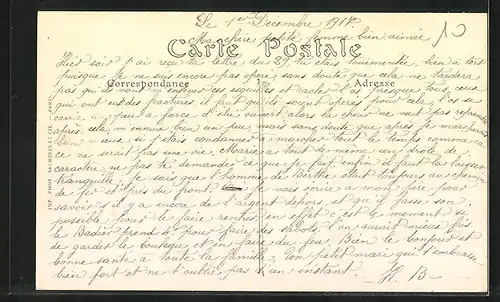 Le 1er Decembre 1917
Ma chère petite femme bien aimée
Carte Postale
Hier soir j'ai reçu ta lettre du 29, tu étais tourmentée, bien à tort
puisque je ne suis encore pas opéré, sans doute que cela ne tardera
Correspondance
Adresse
pas qu'ils vont m'enlever ces esquilles et racler l'os presque tous ceux
qui ont eut des fractures il faut qu'ils soient opérés pour cela, l'os se
carie peut à force d'être ouvert, alors la chair ne veut pas reprendre
après, cela m'ennuie bien un peu mais sans doute que après je marcherai
bien mieux si j'étais condannée à marcher tout le temps comme ça
ce ne serait pas une vie, Marie a tout de même un drôle de
caractère ne pas te demander ce que je fais enfin il faut la laisser
tranquille, je sais que l'homme de Berthe était toujours au chemin
de fer et près du front je vais écrire à mon père pour
savoir s'il y a encore de l'argent dehors, et qu'il fasse son
possible pour le faire rentrer en effet c'est le moment si
le Badier prend pour faire des sabots, l'on aurait mieux fait
de garder la boutique et en faire du feu. Bien le bonjour et
bonne santé à toute la famille, ton petit mari qui t'embrasse
bien fort et ne t'oublie pas un instant. H. B
IMP. PHOT. NEURDEIN ET CIE. - PARIS